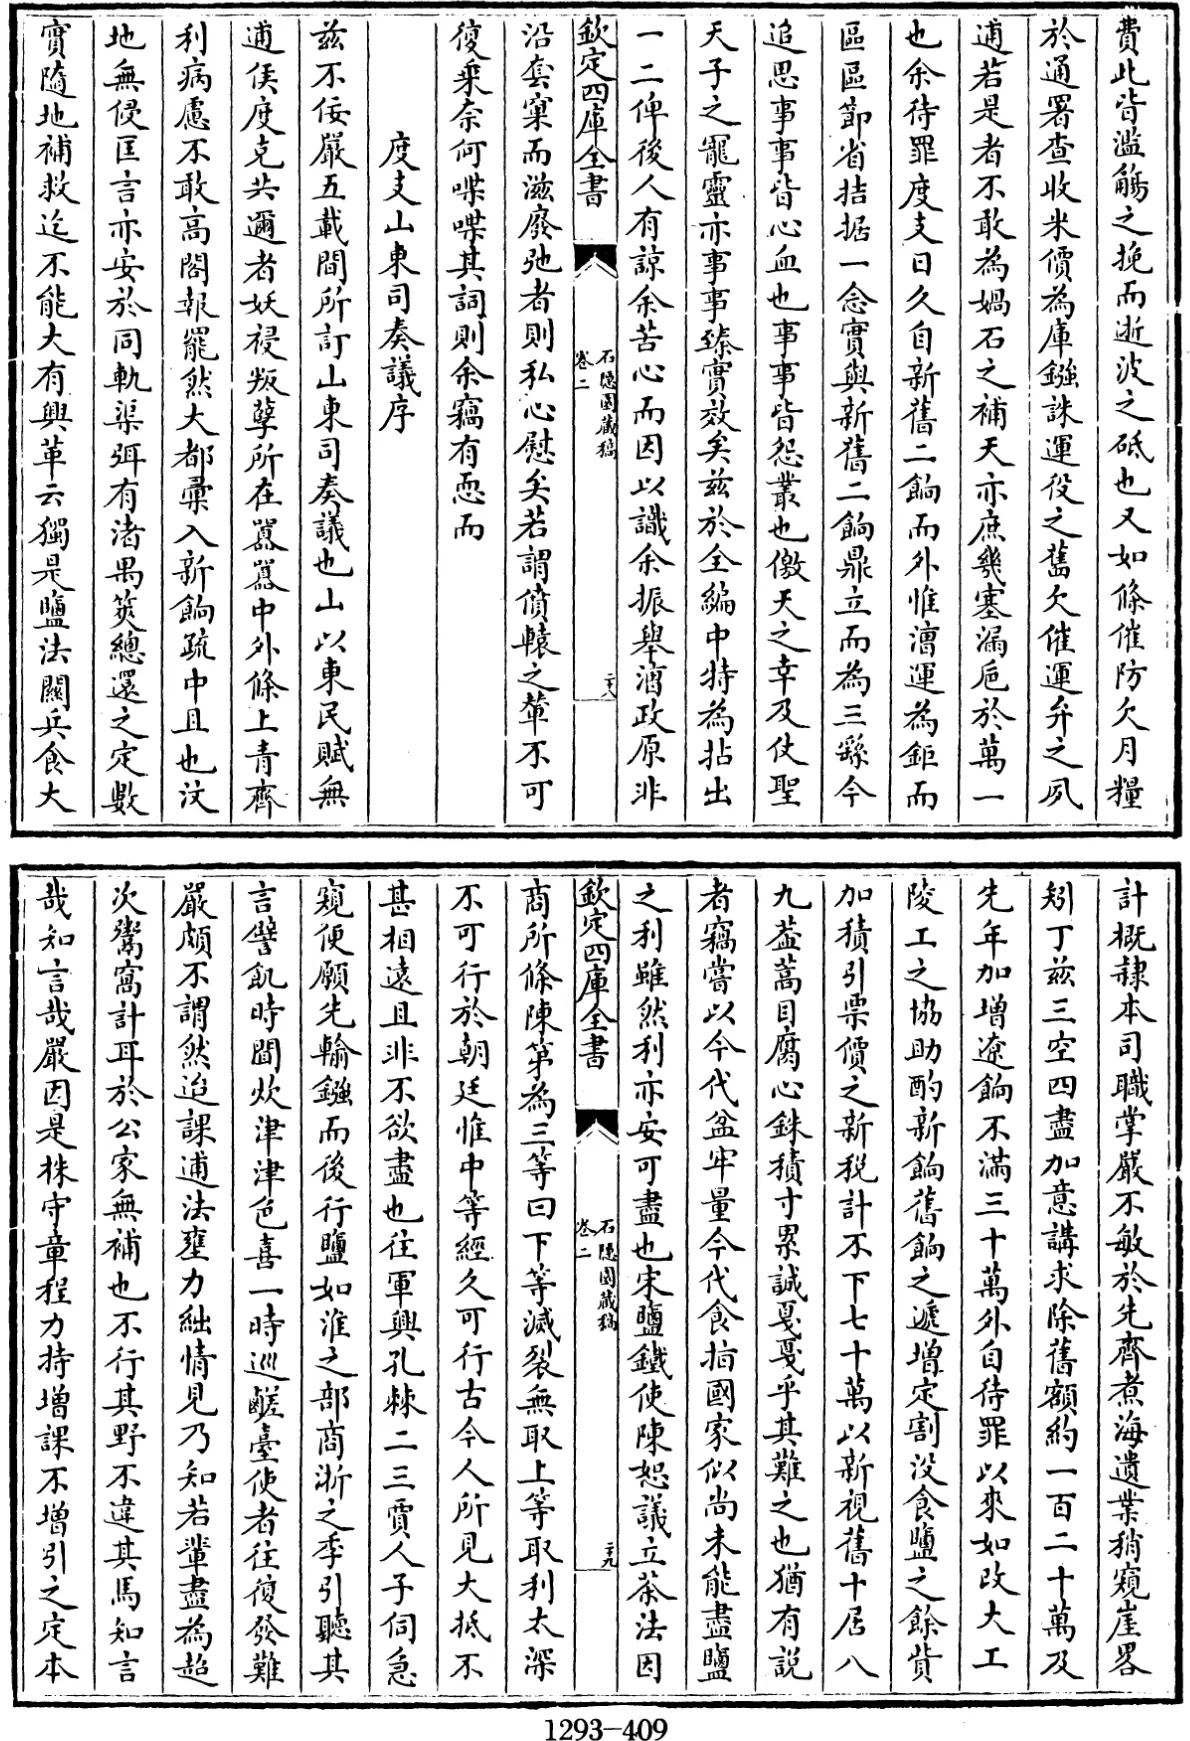 費此皆濫觴之挽而逝波之砥也又如條催防欠月糧
於通署查收米價為庫鏹誅運役之舊欠催運弁之夙
逋若是者不敢為媧石之補天亦庶幾塞漏卮於萬一
也余待罪度支日久自新舊二餉而外惟漕運為鉅而
區區節省拮据一念實與新舊二餉鼎立而為三繇今
追思事事皆心血也事事皆怨叢也儌天之幸及仗聖
天子之寵靈亦事事臻實效矣兹於全編中特為拈出
一二俾後人有諒余苦心而因以識余振舉漕政原非
欽定四庫全書
石隱園藏稿
卷二
二十八
沿套窠而滋廢弛者則私心慰矣若謂僨轅之犖不可
復乘奈何喋喋其詞則余竊有恧而
度支山東司奏議序
兹不佞嚴五載間所訂山東司奏議也山以東民賦無
逋侯度克共邇者妖祲叛孽所在囂囂中外條上青齊
利病慮不敢高閣報罷然大都彙入新餉疏中且也汶
地無侵匡言亦安於同軌渠弭有渚禺筴總還之定數
實隨地補救迄不能大有興革云獨是鹽法關兵食大
計概隸本司職掌嚴不敏於先齊煮海遺業稍窺崖畧
矧丁兹三空四盡加意講求除舊額約一百二十萬及
先年加增遼餉不滿三十萬外自待罪以來如改大工
陵工之協助酌新餉舊餉之遞增定割没食鹽之餘貲
加積引票價之新税計不下七十萬以新視舊十居八
九葢蒿目腐心銖積寸累誠戛戛乎其難之也猶有說
者竊嘗以今代盆牢量今代食指國家似尚未能盡鹽
之利雖然利亦安可盡也宋鹽鐵使陳恕議立茶法因
欽定四庫全書
石隱園藏稿
卷二
二十九
商所條陳第為三等曰下等滅裂無取上等取利太深
不可行於朝廷惟中等經久可行古今人所見大抵不
甚相遠且非不欲盡也往軍興孔棘二三賈人子伺急
窺便願先輸鏹而後行鹽如淮之部商浙之季引聽其
言譬飢時聞炊津津色喜一時巡鹺臺使者往復發難
嚴頗不謂然迨課逋法壅力絀情見乃知若輩盡為超
次鬻窩計耳於公家無補也不行其野不違其馬知言
哉知言哉嚴因是株守章程力持增課不增引之定本
1293-409